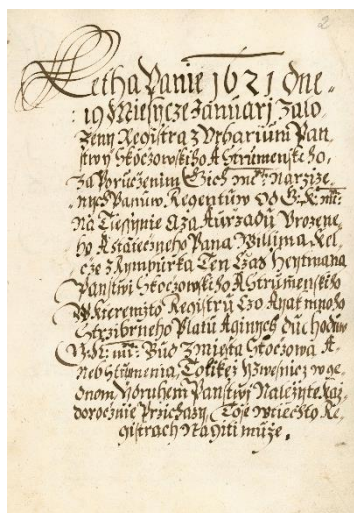 2
Letha Panie 1621 dne
19 Miesycze Januarj zalo
zeny Registra z Urbarium Pan
stwy Skoczowskiho A Strumenskeho,
Za Poruczenim Gich mti: Narzize
nych Panuw Regentuw Od G. K. mti:
Na Tiessynie A za Aurzadu Urozene
ho A Stateczneho Pana Wiljma Kel
cze z Rympurka Ten Czas Heytmana
Panstwi Skoczowskiho A Strumenskiho
W kteremzto Registru Czo A yak mnoho
Strzibrneho Platu A ginych duchoduw
G. K. mti: Bud z Miesta Skoczowa A
neb Strumenia, Tolikez y z wesnicz w ge
dnom y druhem Panstwj Nalezyte kaz
dorocznie Przichazy, To je w tiechto Re
gistrach Najiti muze.